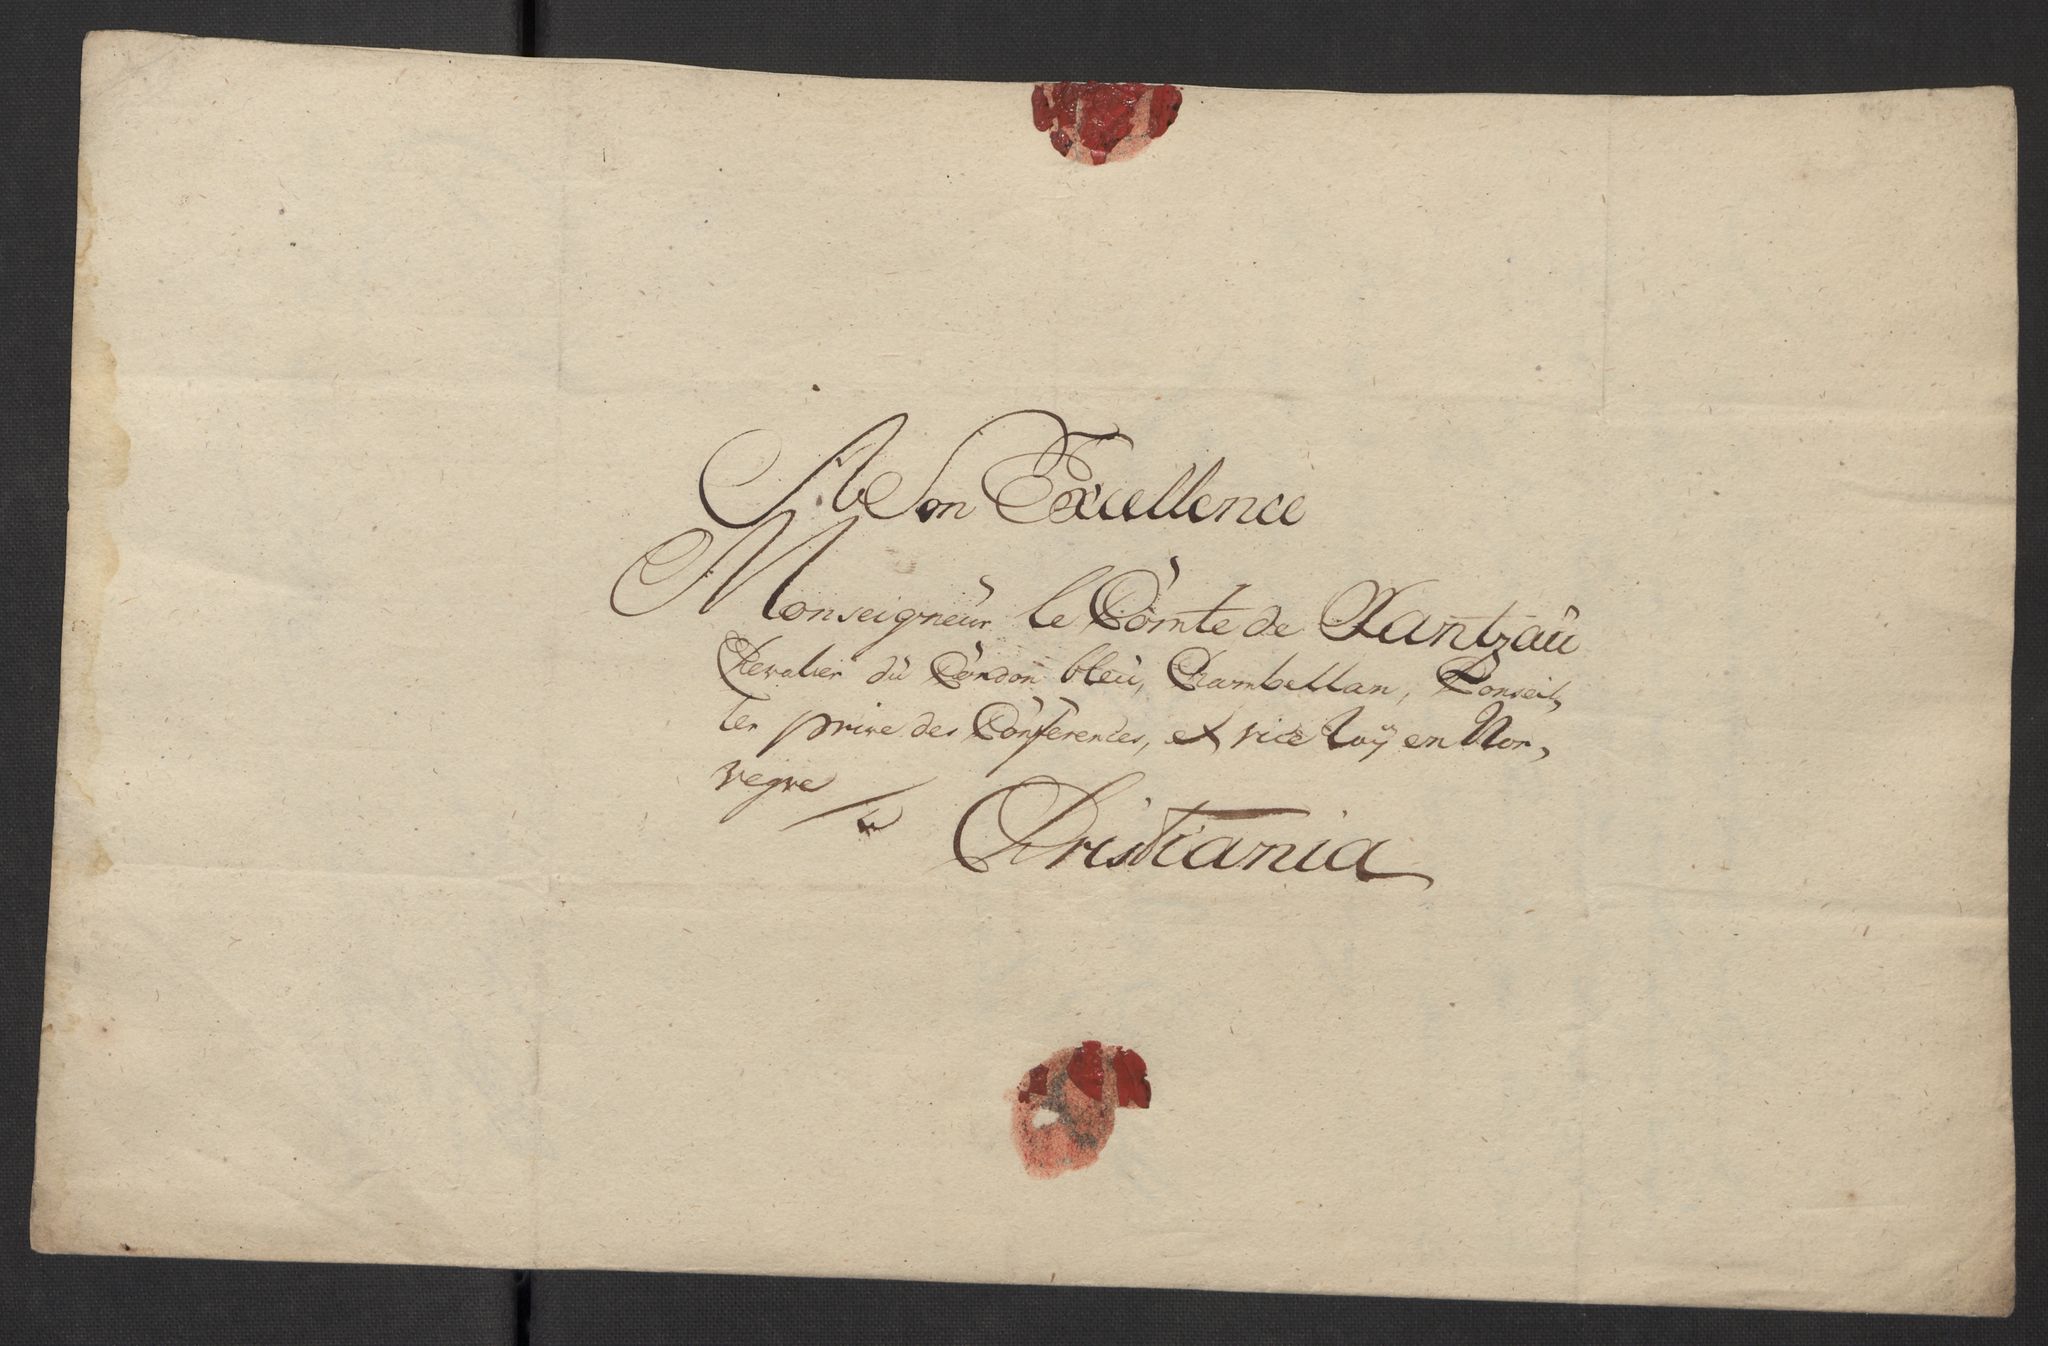 A Son Excellence
Monseigneur le Comte de Rantzaü
Chevalier dü Cordon bleü, Chambellan, Conseil,,
ler prive des Conferences, et vice Roÿ en Nor,,
vegve
a Christiania